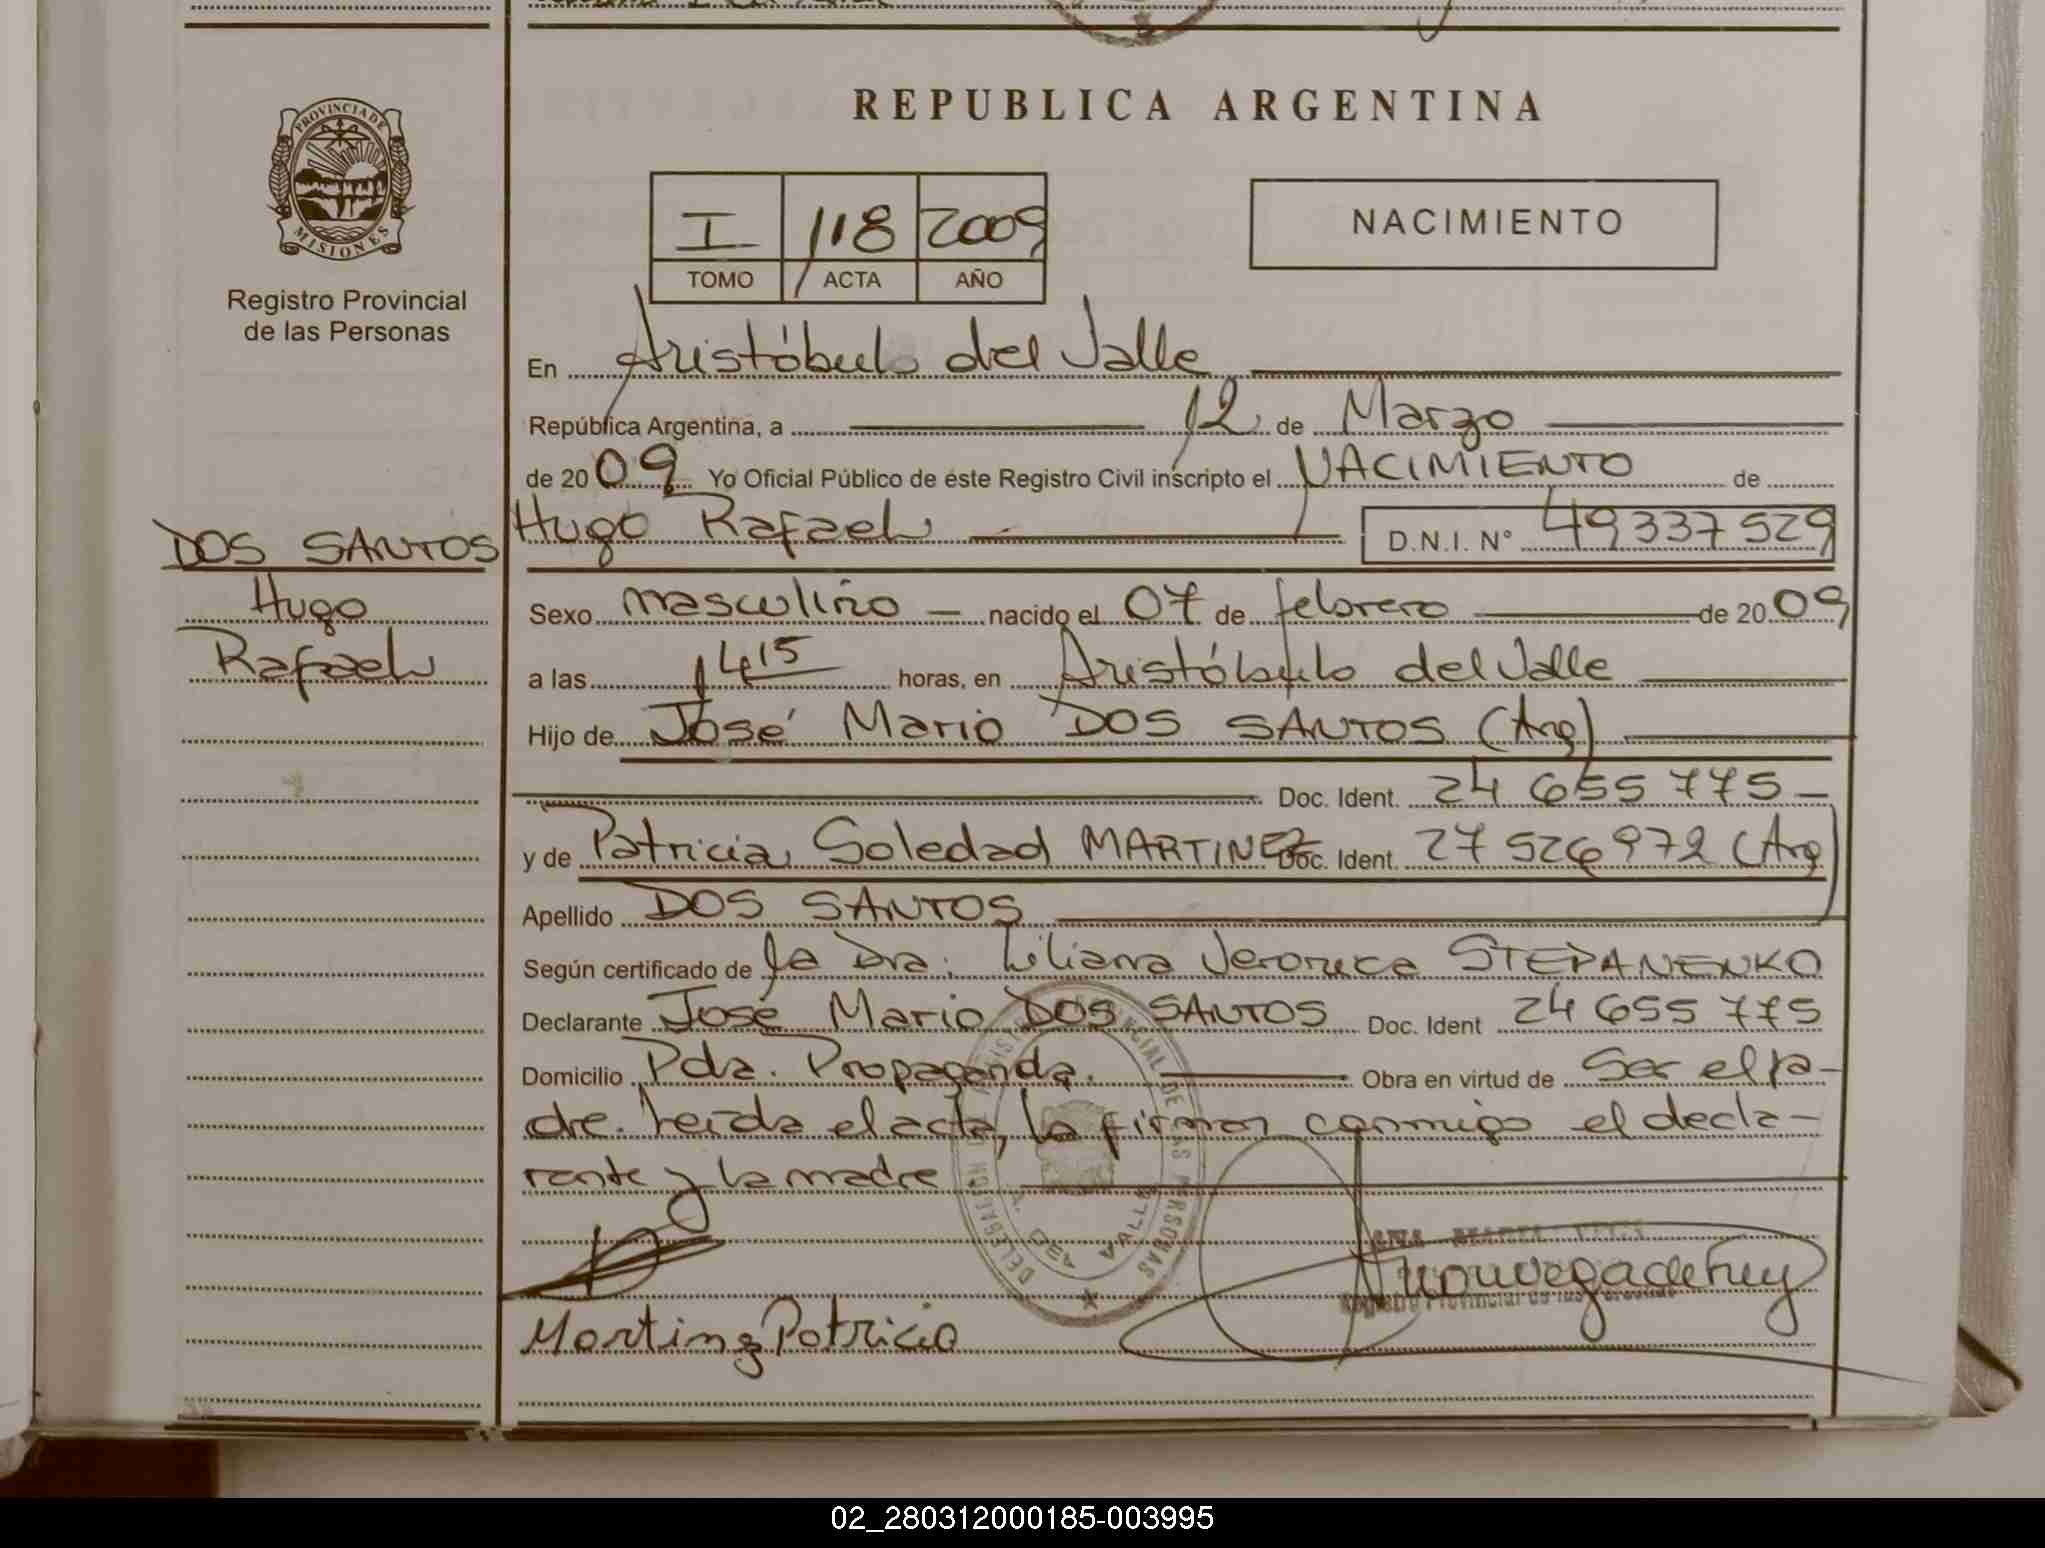 REPUBLICA ARGENTINA
PROVINCIA DE
MISIONES
Registro Provincial
de las Personas
I 118 2009
TOMO ACTA AÑO
NACIMIENTO
En Aristóbulo del Valle
República Argentina, a 12 de Marzo
de 2009 Yo Oficial Público de éste Registro Civil inscripto el NACIMIENTO de
DOS SANTOS
Hugo
Rafael
Hugo Rafael D.N.I. N° 49337529
Sexo masculino nacido el 07 de febrero de 2009
a las 14 15 horas, en Aristóbulo del Valle
Hijo de José Mario DOS SANTOS (Arg)
Doc. Ident. 24 655 775
y de Patricia Soledad MARTINEZ Doc. Ident. 27 526972 (Arg)
Apellido DOS SANTOS
Según certificado de la Dra. Liliana Veronica STEPANENKO
Declarante José Mario DOS SANTOS Doc. Ident 24 655 775
Domicilio Pda. Propaganda. Obra en virtud de Ser el pa-
dre. Leída el acta, la firman conmigo el decla-
rante y la madre
DEL VALLE
Registro Provincial de las Personas
Martinez Patricia
02_280312000185-003995